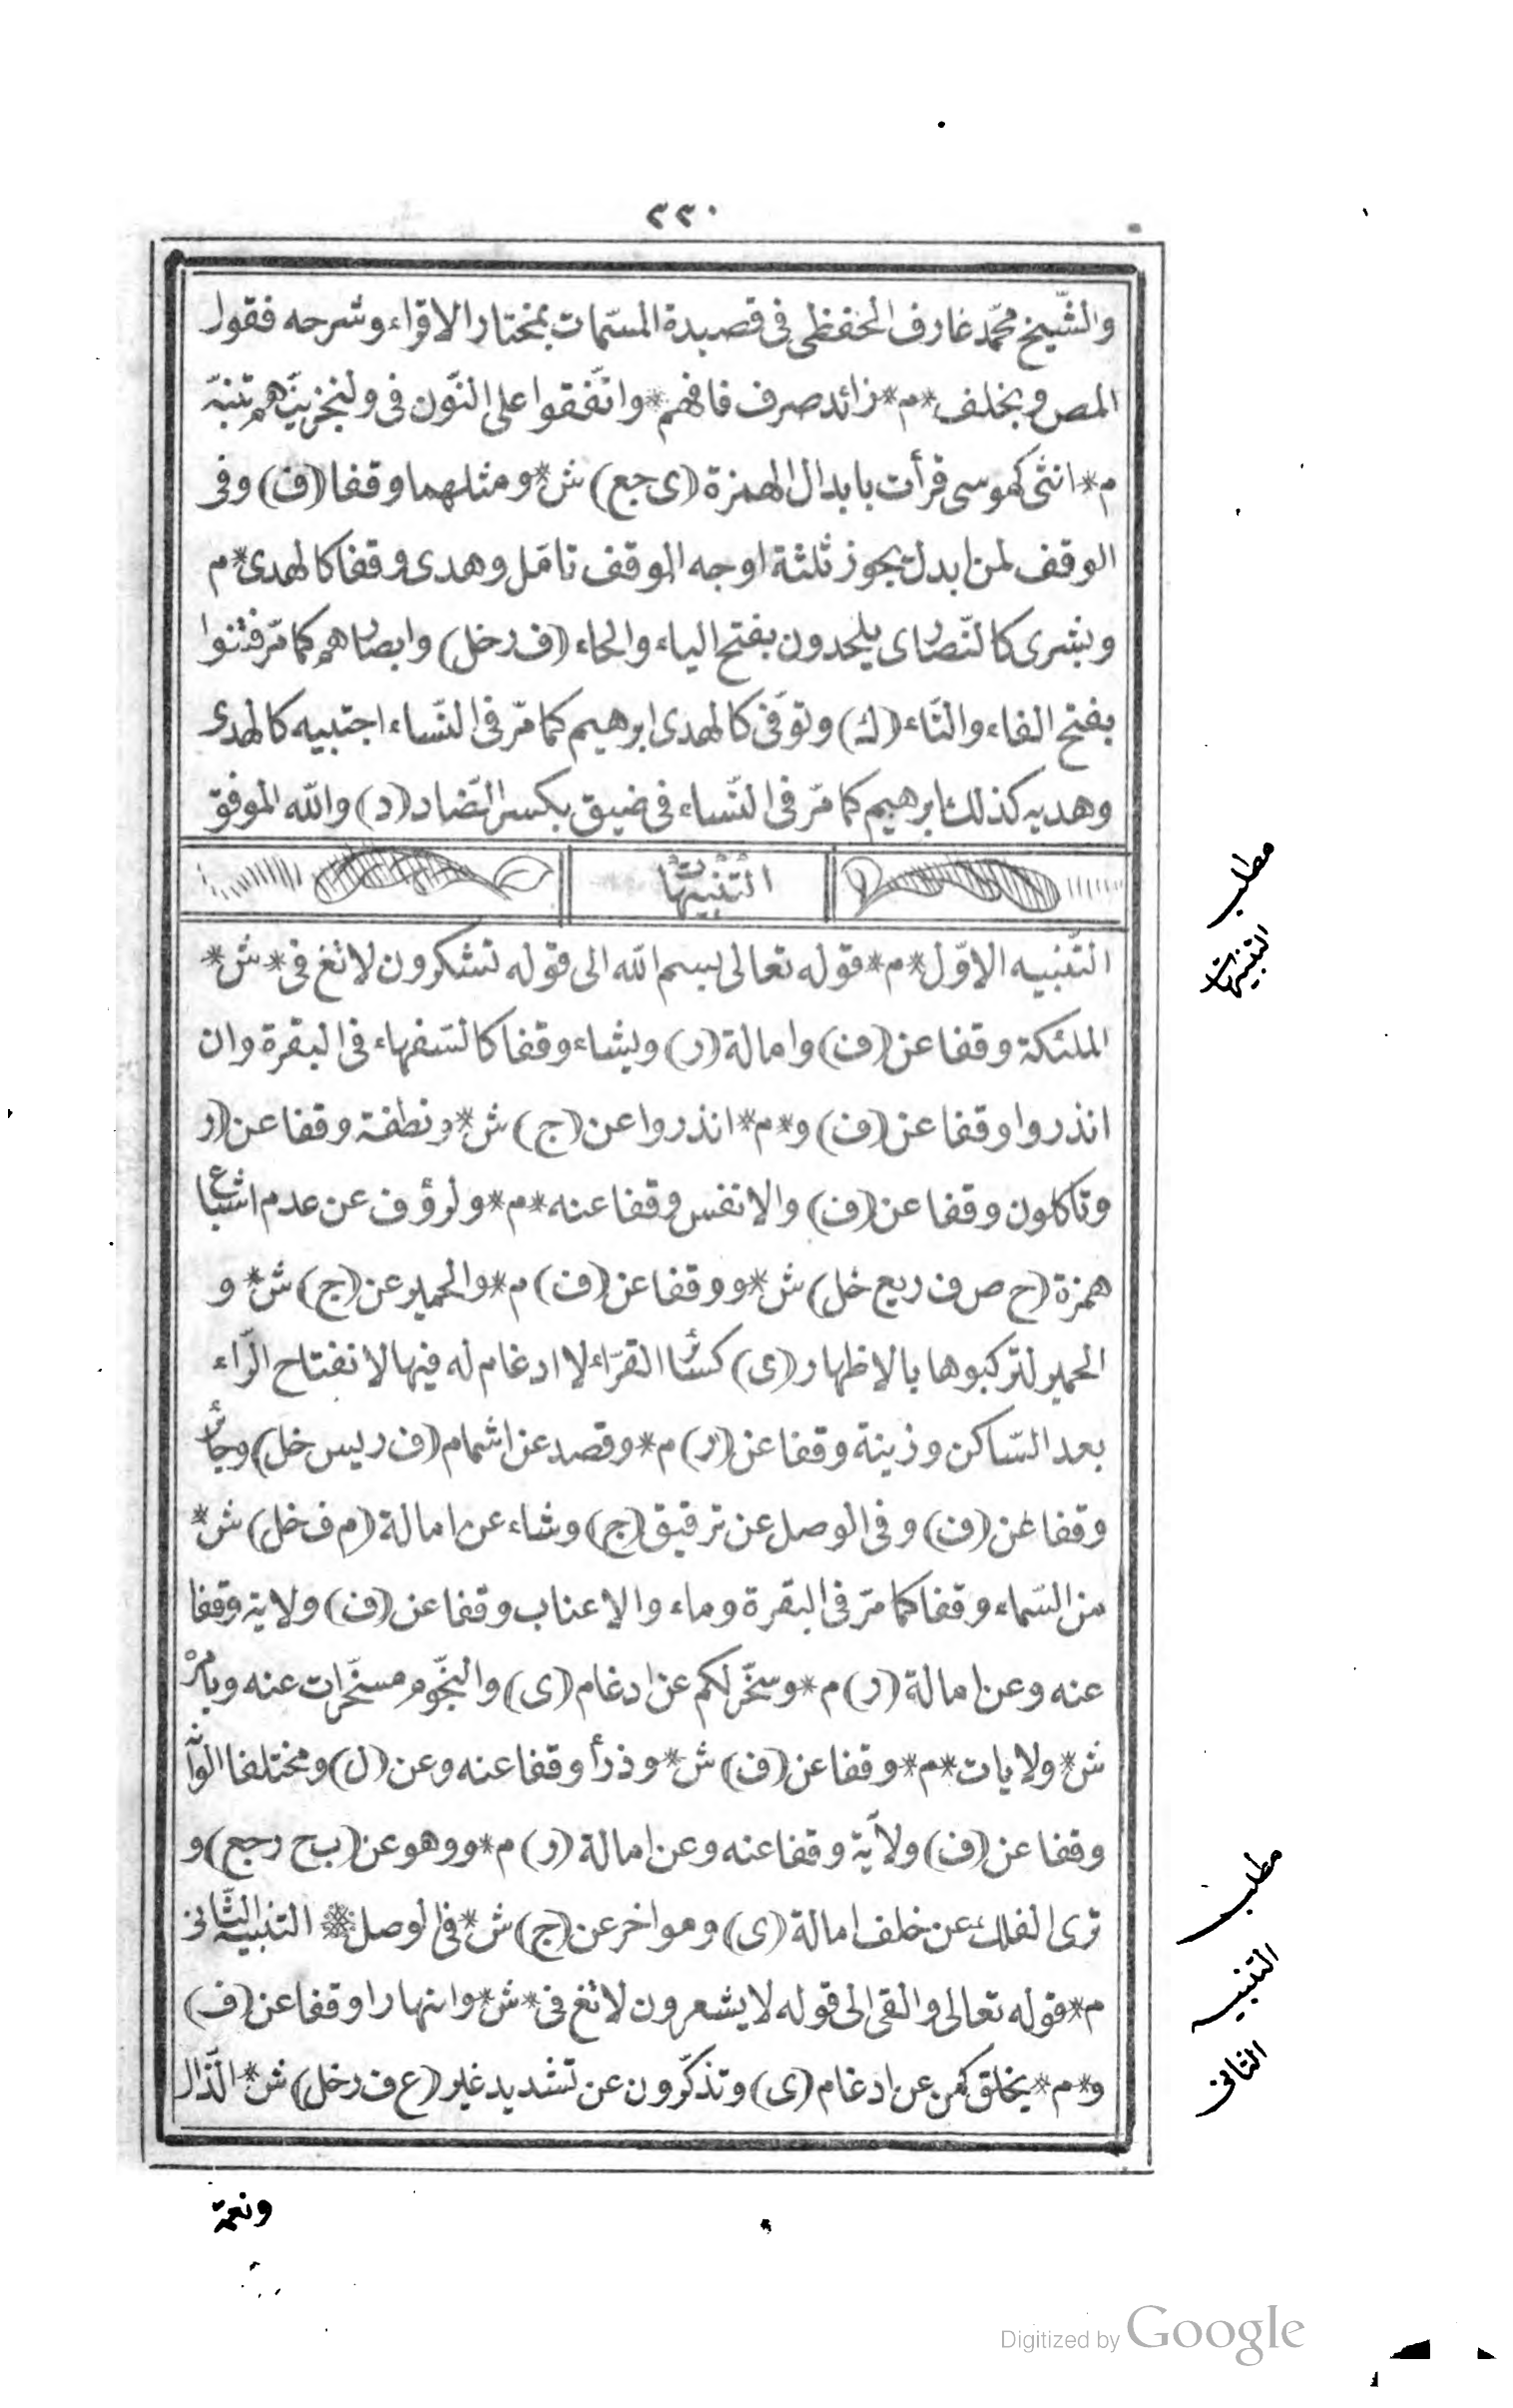 ٢٢٠
والشّيخ محمّد عارف الحفظى فى قصيدة المسّمات بمختار الاقراء وشرحه فقول
المص وبخلف * م * زائد صرف فافهم * واتّفقوا على النّون فى ولنجزينّهم تنبّه
م * انثى كموسى قرأت بابدال الهمزة (ى جع) ش * ومثلهما وقفا (ف) وفى
الوقف لمن ابدل يجوز ثلثة اوجه الموقف تامّل وهدى وقفا كالهدى * م
وبشرى كالنّصارى يلحدون بفتح الياء والحاء (ف رخل) وابصارهم كما مّر فتنوا
بفتح الفاء والتّاء (ك) وتوفّى كالهدى ابرهيم كما مّر فى النّساء اجتبيه كالهدى
وهديه كذلك ابرهيم كما مّر فى النّساء فى ضيق بكسر الضّاد (د) والله الموفق
التّنبيهات
مطلب
التنبيهات
التّنبيه الاوّل * م * قوله تعالى بسم الله الى قوله تشكرون لائغ فى * ش *
الملئكة وقفا عن (ف) وامالة (ر) ويشاء وقفا كالسّفهاء فى البقرة وان
انذروا وقفا عن (ف) و * م * انذروا عن (ج) ش * ونطفة وقفا عن (ر
وتأكلون وقفا عن (ف) والانفس وقفا عنه * م * ولرؤف عن عدم اشباع
همزة (ح ص ف ريع خل) ش * ووقفا عن (ف) م * والحمير عن (ج) ش * و
الحمير لتركبوها بالاظهار (ى) كسائر القرّاء لا ادغام له فيها لانفتاح الرّاء
بعد السّاكن وزينة وقفا عن (ر) م * وقصد عن اشمام (ف ريس خل) وجائر
وقفا عن (ف) وفى الوصل عن ترقيق (ج) وشاء عن امالة (م ف خل) ش *
من السّماء وقفا كما مّر فى البقرة وماء والاعناب وقفا عن (ف) ولاية وقفا
عنه وعن امالة (ر) م * وسخّر لكم عن ادغام (ى) والنجّوم مسخّرات عنه وبامره
ش * ولايات * م * وقفا عن (ف) ش * وذرأ وقفا عنه وعن (ل) ومختلفا الوانه
وقفا عن (ف) ولآية وقفا عنه وعن امالة (ر) م * ووهو عن (ب ح رجع) و
ترى الفلك عن خلف امالة (ى) ومواخر عن (ج) ش * فى الوصل * التنبيه الثّانى
مطلب
التنبيه
الثانى
م * قوله تعالى والقى الى قوله لا يشعرون لائغ فى * ش * وانهارا وقفا عن (ف)
و * م * يخلق كمن عن ادغام (ى) وتذكّرون عن تشديد غير (ع ف رخل) ش * الذّال
ونعمة
Digitized by Google